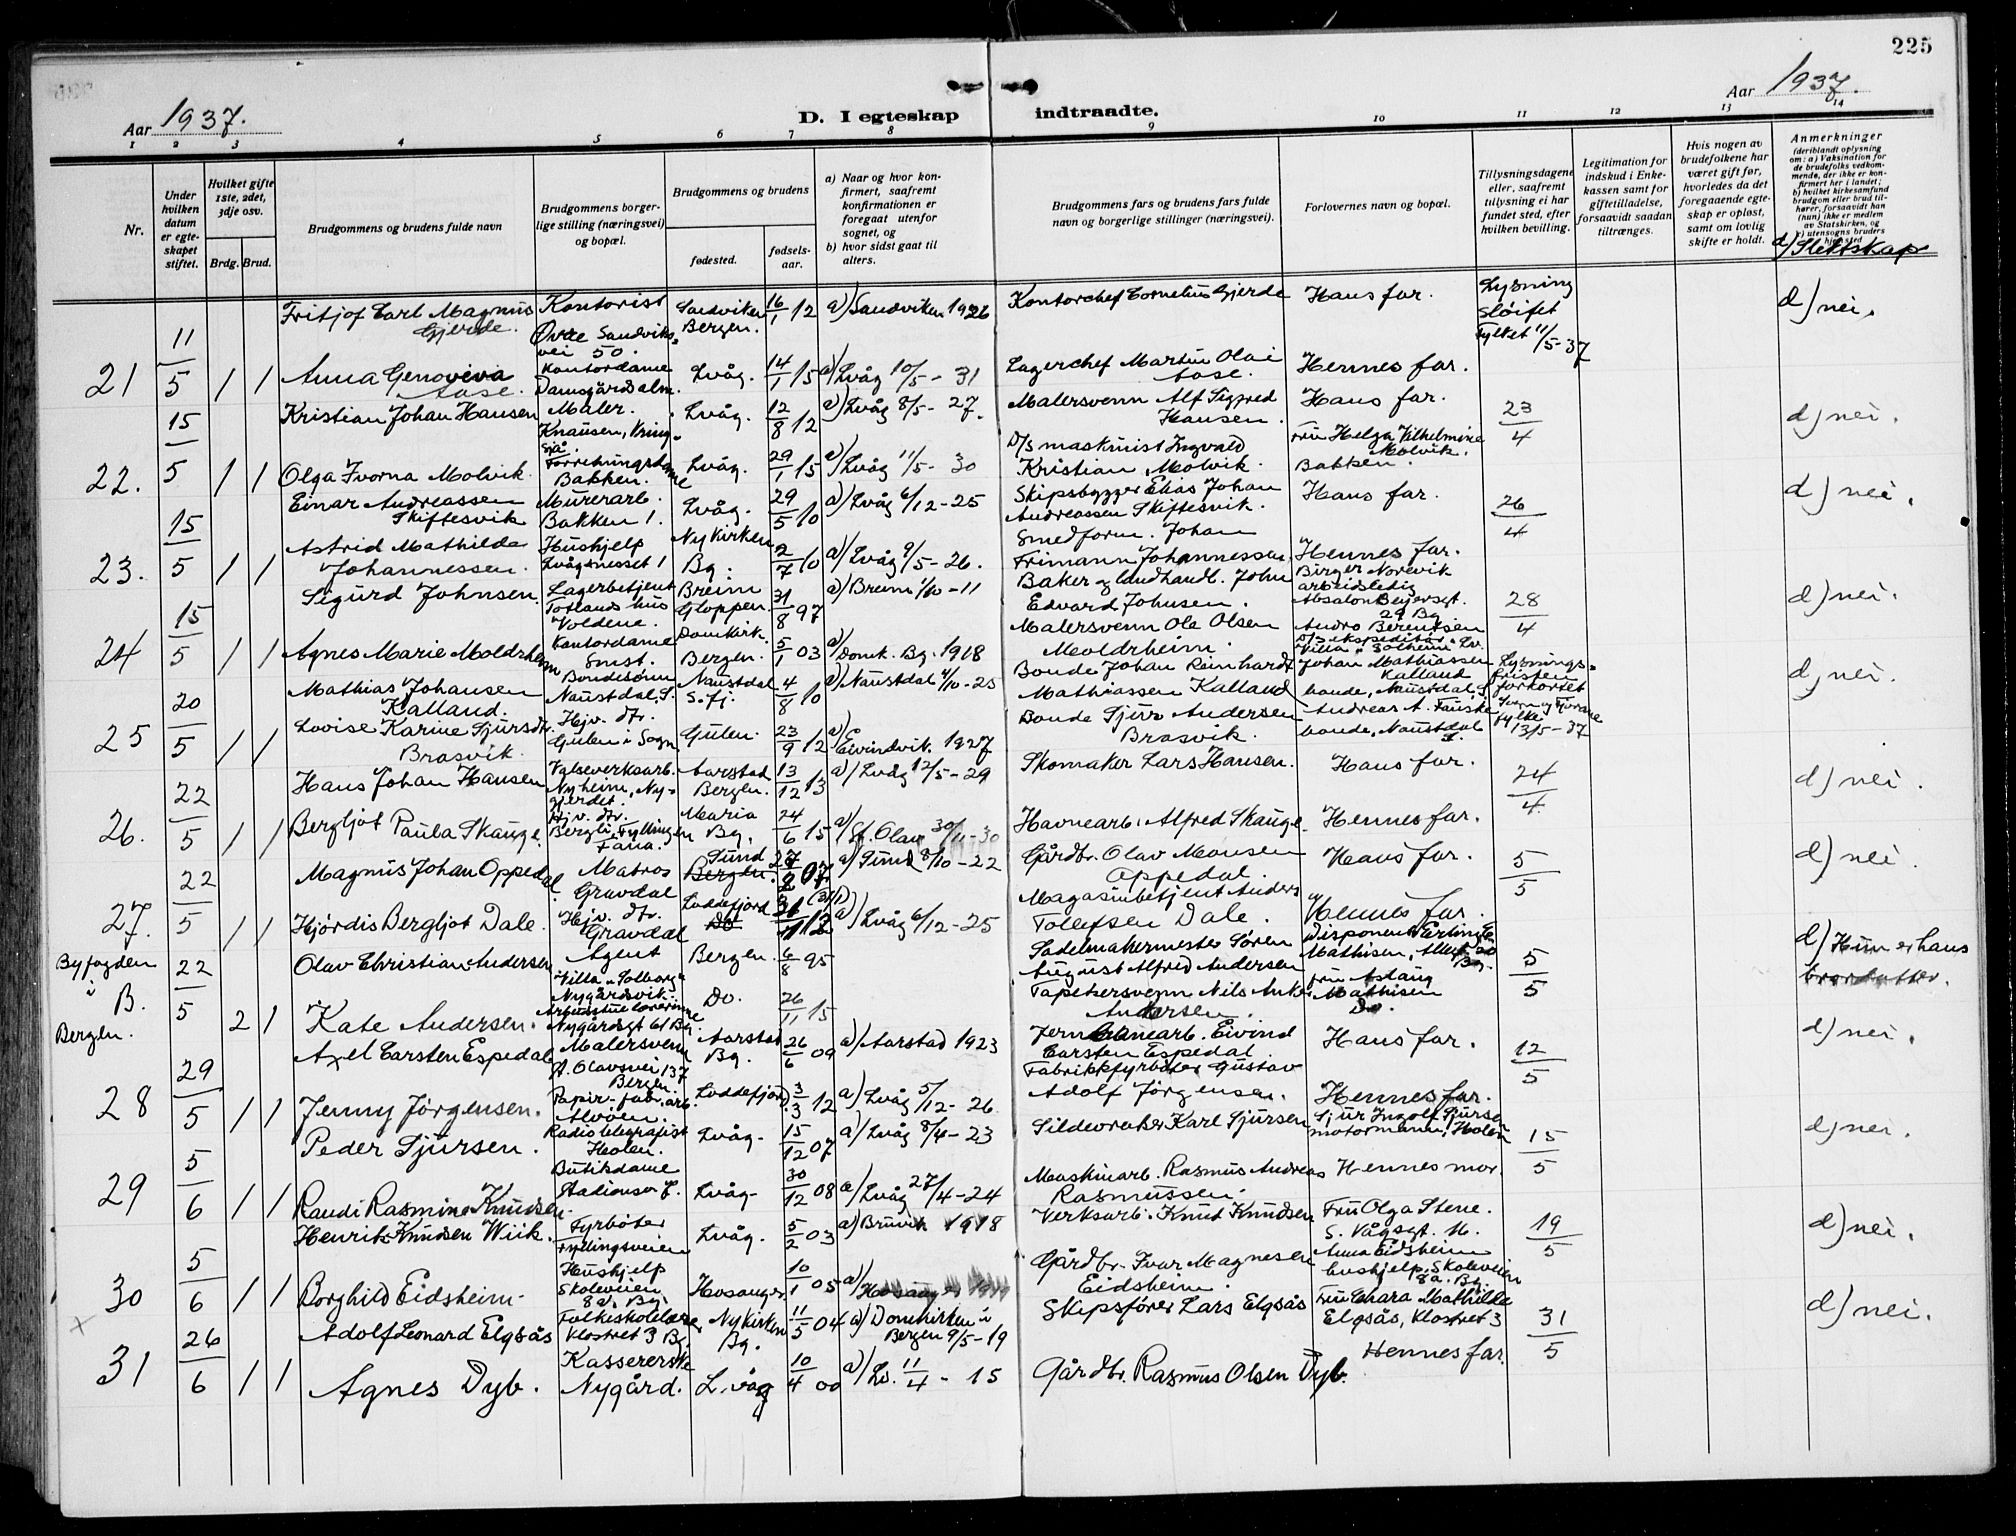 225
Aar 1937.
D. I egteskap indtraadte.
Aar 1937.
1 2 3 4 5 6 7 8 9 10 11 12 13 14
Nr.
Under hvilken datum er egteskapet stiftet.
Hvilket gifte 1ste, 2det, 3dje osv.
Brdg. Brud.
Brudgommens og brudens fulde navn
Brudgommens borgerlige stilling (næringsvei) og bopæl.
Brudgommens og brudens
fødested.
fødselsaar.
a) Naar og hvor konfirmert, saafremt konfirmationen er foregaat utenfor sognet, og
b) hvor sidst gaat til alters.
Brudgommens fars og brudens fars fulde navn og borgerlige stillinger (næringsvei).
Forlovernes navn og bopæl.
Tillysningsdagene eller, saafremt tillysning ei har fundet sted, efter hvilken bevilling.
Legitimation for indskud i Enkekassen samt for giftetilladelse, forsaavidt saadan tiltrænges.
Hvis nogen av brudefolkene har været gift før, hvorledes da det foregaaende egteskap er opløst, samt om lovlig skifte er holdt.
Anmerkninger
(deriblandt oplysning om: a) Vaksination for de brudefolks vedkommende, der ikke er konfirmert her i landet; b) hvilket kirkesamfund brudgom eller brud tilhører, forsaavidt han (hun) ikke er medlem av Statskirken, og c) utensogns bruders hjemsted
d) Slektskap
21 11/5 1 1
Fritjof Carl Magnus Gjerde. Kontorist Øvre Sandviksvei 50. Sandviken Bergen. 16/1 12 a) Sandviken 1926 Kontorchef Cornelius Gjerde Hans far. Lysning sløifet Fylket 11/5-37 d) nei.
Anna Genoviva Aase. Kontordame Damsgårdsalm. Lvåg. 14/1 15 a) Lvåg 10/5-31 Lagerchef Martin Olai Aase. Hennes far.
22. 15/5 1 1
Kristian Johan Hansen Maler. Knausen, Kringsjå. Lvåg. 12/8 12 a) Lvåg 8/5-27. Malersvenn Alf Sigfred Hansen. Hans far. 23/4 d) nei.
Olga Ivorna Molvik. Forretningsdame Bakken. Lvåg. 29/1 15 a) Lvåg 11/5-30 D/s maskinist Ingvald Kristian Molvik. Fru Helga Vilhelmine Molvik. Bakken.
23. 15/5 1 1
Einar Andreassen Skiftesvik Murerarb. Bakken 1. Lvåg. 29/5 10 a) Lvåg 6/12-25 Skipsbygger Elias Johan Andreassen Skiftesvik. Hans far. 26/4 d) nei.
Astrid Mathilde Johannessen. Hushjelp Lvågsnesset 1 Nykirken Bg. 2/7 10 a) Lvåg 9/5-26. Smedform. Johan Frimann Johannessen Hennes far.
24 15/5 1 1
Sigurd Johnsen. Lagerbetjent Totlands hus Voldene. Breim Gloppen. 31/8 97 a) Breim 1/10-11 Baker og landhandl. John Edvard Johnsen. Birger Norevik arbeidsledig Absalon Beyersgt. 29 Bg. 28/4 d) nei.
Agnes Marie Moldrheim Kontordame Smst. Domkirk. Bergen. 5/1 03 a) Domk. Bg. 1918 Malersvenn Ole Olsen Moldrheim. Andro Berentsen D/s ekspeditør Villa "Solheim" Lv.
25 20/5 1 1
Mathias Johansen Kalland. Bondesønn Naustdal, S. Naustdal S. Fj. 4/8 10 a) Naustdal 4/10-25 Bonde Johan Reinhardt Mathiassen Kalland Johan Mathiassen Kalland bonde, Naustdal, S. Lysningsfristen forkortet Sogn og Fjordane fylke 13/5-37 d) nei.
Lovise Karine Sjursdtr. Brosvik. Hjv. dtr. Gulen i Sogn Gulen. 23/9 12 a) Eivindvik. 1927 Bonde Sjur Andersen Brosvik. Andreas A. Fauske bonde, Naustdal S.
26. 22/5 1 1
Hans Johan Hansen Valseverksarb. Nyheim, Nygjerdet. Aarstad Bergen. 13/12 13 a) Lvåg 12/5-29 Skomaker Lars Hansen. Hans far. 24/4. d) nei.
Bergljot Paula Skauge. Hjv. dtr. Bergli, Fyllingen Fana. Maria Bg. 24/6 15 a) St. Olav 30/11-30 Havnearb. Alfred Skauge. Hennes far.
27. 22/5 1 1
Magnus Johan Oppedal Matros Gravdal Sund Bergen. 27/2 07 a) Sund 8/10-22 Gårdbr. Olav Monsen Oppedal. Hans far. 5/5 d) nei.
Hjørdis Bergljot Dale. Hjv. dtr. Gravdal Loddefjord Do a) Lvåg 6/12-25 Magasinbetjent Anders Tollefsen Dale. Hennes far.
Byfogden i B. Bergen. 22/5 2 1
Olav Christian Andersen Agent Villa "Solborg" Nygårdsvik. Bergen 6/8 95 Sadelmakermester Søren August Alfred Andersen Disponent Erling Mathisen, 5/5 d) Hun er hans brordatter.
Kate Andersen. Arbeidstuelærerinne Nygårdsgt 61 Bg. Do. 26/11 15 Tapetsersvenn Nils Anker Andersen. Fru Aslaug Mathisen Do.
28 29/5 1 1
Axel Carsten Espedal Malersvenn St. Olavsvei 137 Bergen. Aarstad Bg. 26/6 09 a) Aarstad 1923 Jern arb. Eivind Carsten Espedal. Hans far. 12/5 d) nei.
Jenny Jørgensen. Papir-fabr. arb. Alvøen. Loddefjord 3/3 12 a) Lvåg 5/12-26 Fabrikkfyrbøter Gustav Adolf Jørgensen. Hennes far.
29 5/6 1 1
Peder Sjursen. Radiotelegrafist Holen. Lvåg- 15/12 07 a) Lvåg 8/4-23 Sildevraker Karl Sjursen Sjur Ingolf Sjursen motormann, Holen 15/5 d) nei.
Randi Rasmine Knudsen. Butikdame Stadionsv 7. Lvåg- 30/12 08 a) Lvåg 27/4-24 Maskinarb. Rasmus Andreas Rasmussen. Hennes mor.
30 5/6 1 1
Henrik Knudsen Wiik. Fyrbøter Fyllingsveien Lvåg. 5/2 03 a) Bruvik 1918 Verksarb. Knut Knudsen Fru Olga Stene. S. Vågsgt. 11. 19/5 d) nei.
Borghild Eidsheim. Hushjelp Skoleveien 8a. Bg. Hosanger 10/1 05 a) Hosanger 1919 Gårdbr. Ivar Magnesen Eidsheim. Anna Eidsheim hushjelp, Skoleveien 8a. Bg.
x 31 26/6 1 1
Adolf Leonard Elgsås Folkeskolelærer Klostret 3 Bg. Nykirken Bg. 11/5 04 a) Domkirken i Bergen 9/5-19 Skipsfører Lars Elgsås Fru Chara Mathilde Elgsås, Klostret 3 31/5 d) nei.
Agnes Dyb. Kassererske Nygård. L. våg 10/4 00 a) Lv. 11/4-15 Gårdbr. Rasmus Olsen Dyb. Hennes far.